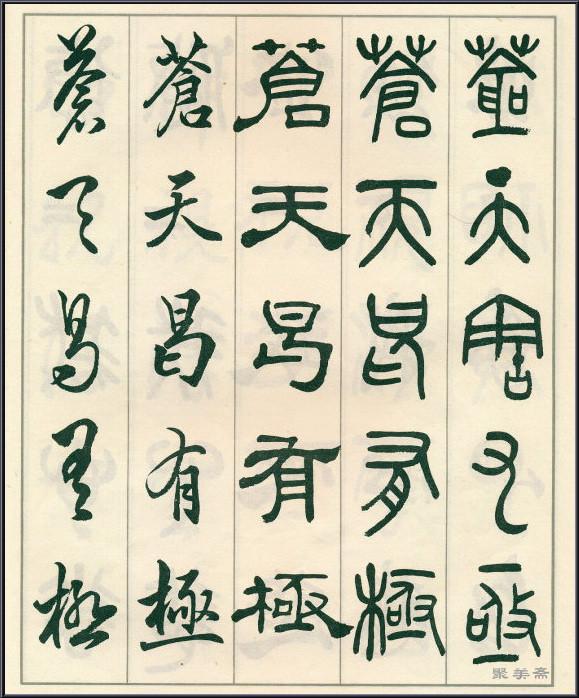 蒼天曷有極
蒼天曷有極
蒼天曷有極
蒼天曷有極
蒼天曷有極
聚美斋